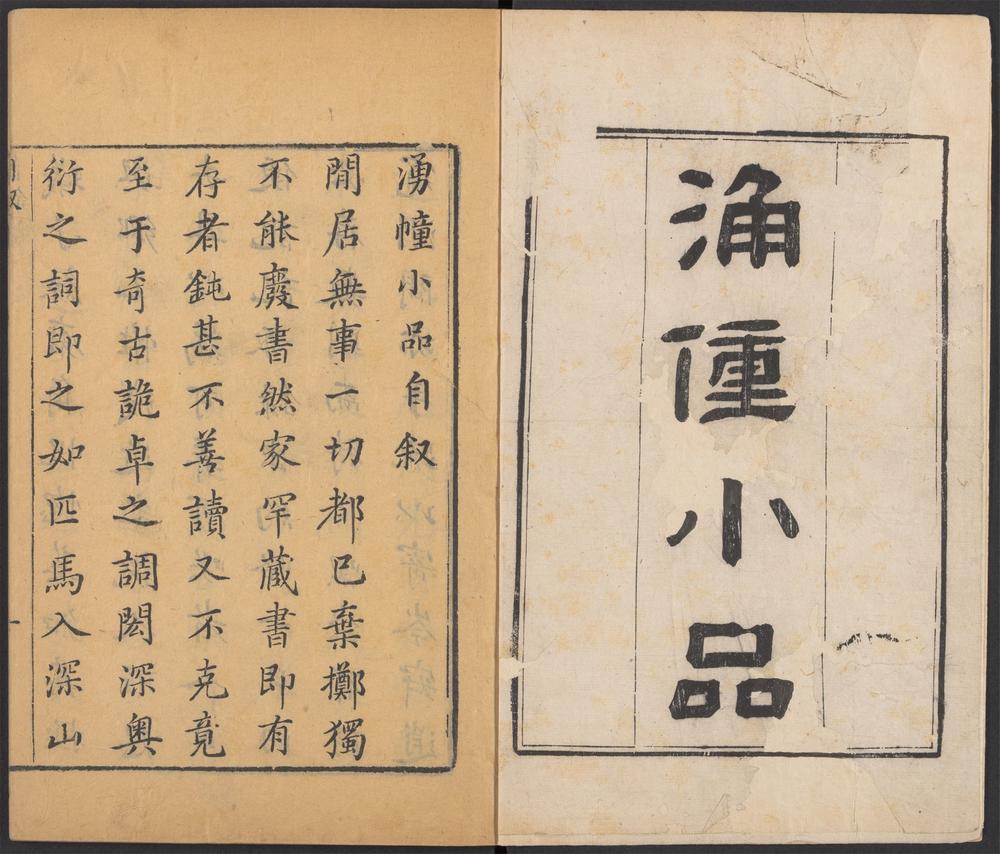 涌僮小品
湧幢小品自叙
閒居無事一切都已棄擲獨
不能廢書然家罕藏書即有
存者鈍甚不善讀又不克竟
至于奇古詭卓之調閎深奧
衍之詞即之如匹馬入深山